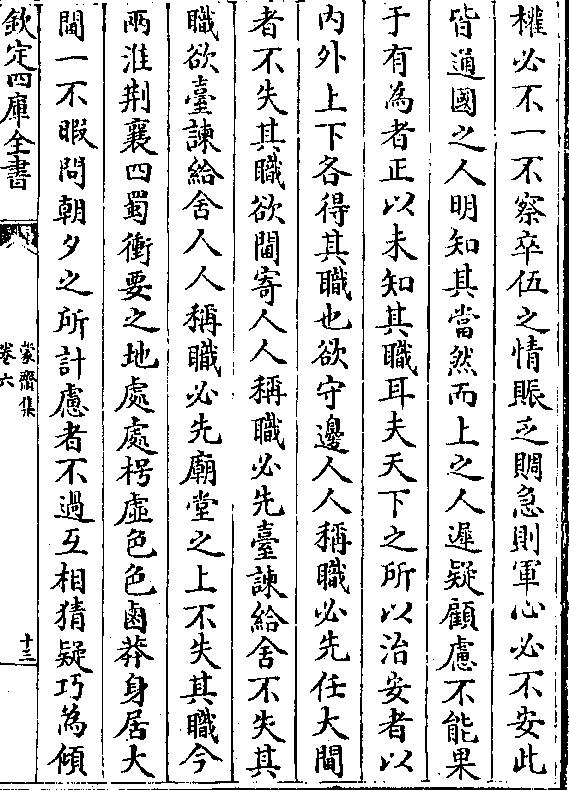 權必不一不察卒伍之情賑乏賙急則軍心必不安此
皆通國之人明知其當然而上之人遲疑顧慮不能果
于有為者正以未知其職耳夫天下之所以治安者以
内外上下各得其職也欲守邊人人稱職必先任大閫
者不失其職欲閫寄人人稱職必先臺諫給舍不失其
職欲臺諫給舍人人稱職必先廟堂之上不失其職今
兩淮荆襄四蜀衝要之地處處枵虛色色鹵莽身居大
閫一不暇問朝夕之所計慮者不過互相猜疑巧為傾
欽定四庫全書
蒙齋集
卷六
十三